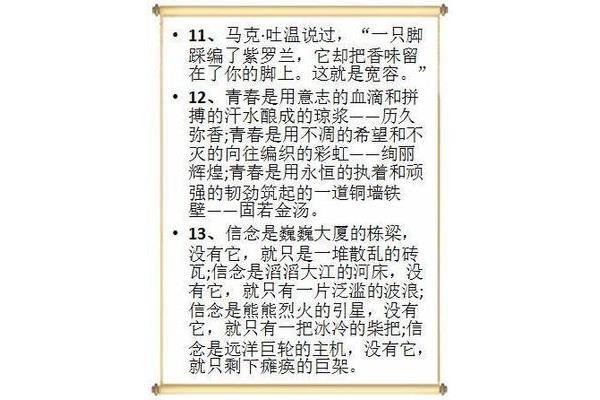 • 11、马克·吐温说过，“一只脚
踩编了紫罗兰，它却把香味留
在了你的脚上。这就是宽容。”
• 12、青春是用意志的血滴和拼
搏的汗水酿成的琼浆——历久
弥香;青春是用不凋的希望和不
灭的向往编织的彩虹——绚丽
辉煌;青春是用永恒的执着和顽
强的韧劲筑起的一道铜墙铁
壁——固若金汤。
• 13、信念是巍巍大厦的栋梁，
没有它，就只是一堆散乱的砖
瓦;信念是滔滔大江的河床，没
有它，就只有一片泛滥的波浪;
信念是熊熊烈火的引星，没有
它，就只有一把冰冷的柴把;信
念是远洋巨轮的主机，没有它，
就只剩下瘫痪的巨架。